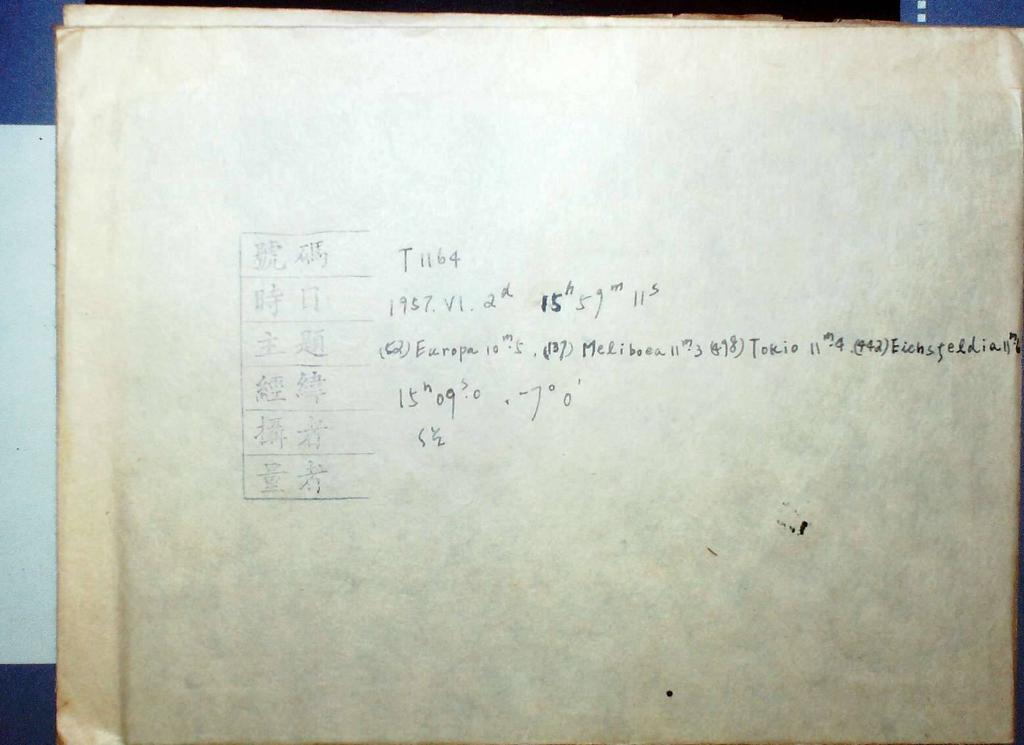 號碼 T 1164
時日 1957. VI. 2ᵈ 15ʰ 59ᵐ 11ˢ
主題 (52) Europa 10ᵐ.5, (137) Meliboea 11ᵐ.3 (498) Tokio 11ᵐ.4, (442) Eichsfeldia 11ᵐ.6
經緯 15ʰ 09ˢ.0, -7° 0'
攝者
量者